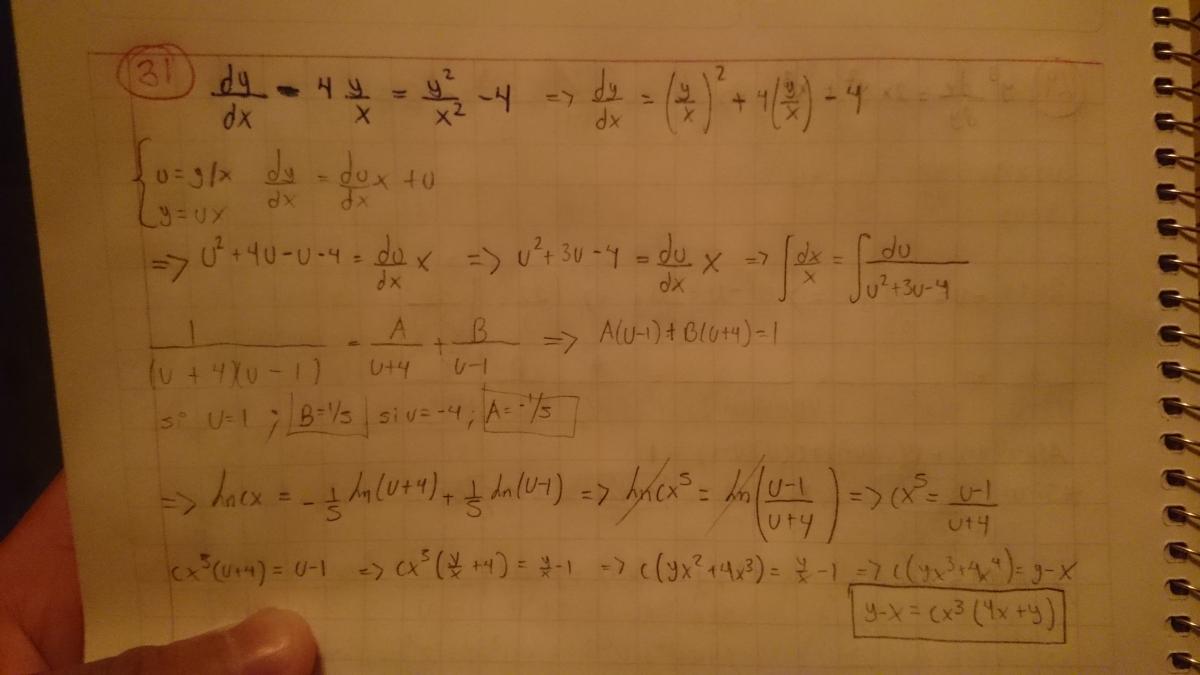 31 dy/dx - 4 y/x = y²/x² - 4 => dy/dx = (y/x)² + 4(y/x) - 4
{ u = y/x dy/dx = du/dx x + u
y = ux
=> u² + 4u - u - 4 = du/dx x => u² + 3u - 4 = du/dx x => ∫ dx/x = ∫ du/(u² + 3u - 4)
1/((u + 4)(u - 1)) = A/(u+4) + B/(u-1) => A(u-1) + B(u+4) = 1
si u=1 ; B=1/5 si u=-4 ; A=-1/5
=> ln cx = -1/5 ln(u+4) + 1/5 ln(u-1) => ln cx⁵ = ln((u-1)/(u+4)) => cx⁵ = (u-1)/(u+4)
cx⁵(u+4) = u-1 => cx⁵(y/x + 4) = y/x - 1 => c(yx² + 4x³) = y/x - 1 => c(yx³ + 4x⁴) = y - x
y-x = cx³(4x+y)